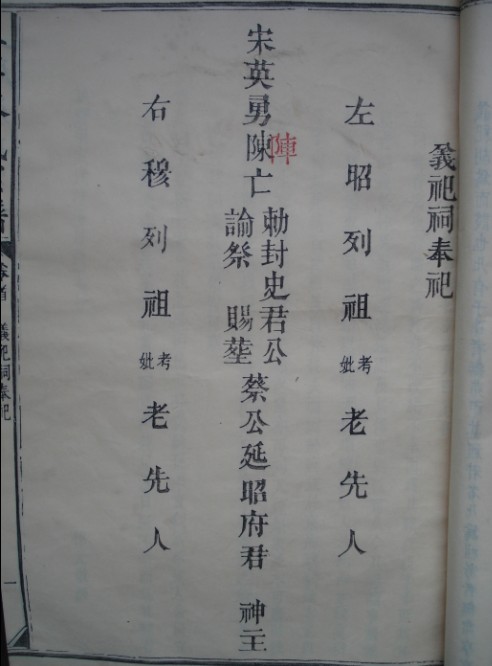 義祀祠奉祀
左昭列祖考妣老先人
宋英勇陳亡
陣
勅封史君公
諭祭 賜塟
蔡公延昭府君 神主
右穆列祖考妣老先人
卷首 義祀祠奉祀
一